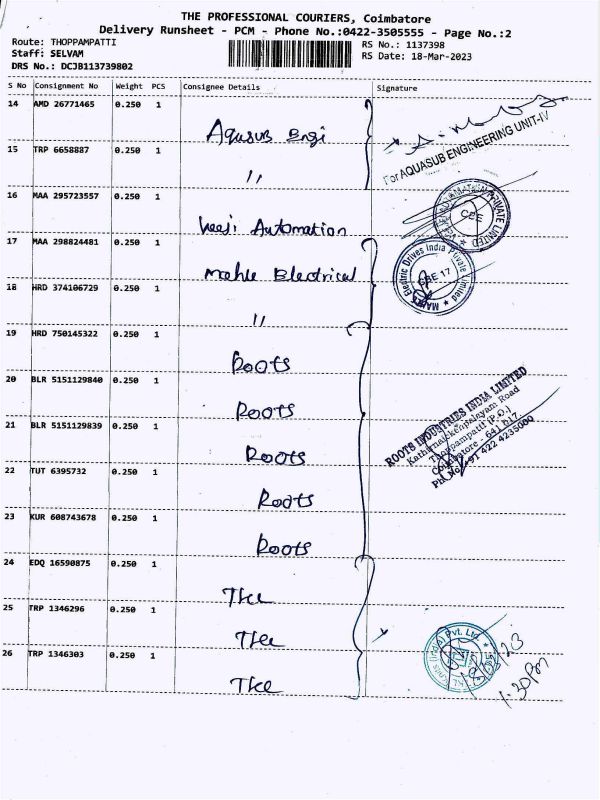 THE PROFESSIONAL COURIERS, Coimbatore
Delivery Runsheet - PCM - Phone No.:0422-3505555 - Page No.:2
Route: THOPPAMPATTI RS No.: 1137398
Staff: SELVAM RS Date: 18-Mar-2023
DRS No.: DCJB113739802
S No Consignment No Weight PCS Consignee Details Signature
14 AMD 26771465 0.250 1 Aquasub Engi
For AQUASUB ENGINEERING UNIT-IV
15 TRP 6658887 0.250 1 "
16 MAA 295723557 0.250 1 Automation
PRIVATE LIMITED
CBE
17 MAA 298824481 0.250 1 Mahle Electrical
MAHLE Electric Drives India Private Limited
CBE 17
18 HRD 374106729 0.250 1 "
19 HRD 750145322 0.250 1 Roots
20 BLR 5151129840 0.250 1 Roots
21 BLR 5151129839 0.250 1 Roots
ROOTS INDUSTRIES INDIA LIMITED
Kathirnaickenpalayam Road
Thoppampatti (P.O.)
Coimbatore - 641 017.
Ph No: +91 422 4235000
22 TUT 6395732 0.250 1 Roots
23 KUR 608743678 0.250 1 Roots
24 EDQ 16590875 0.250 1 Tkee
25 TRP 1346296 0.250 1 Tkee
26 TRP 1346303 0.250 1 Tkee
(India) Pvt. Ltd.
18/03/23
1.30Pm